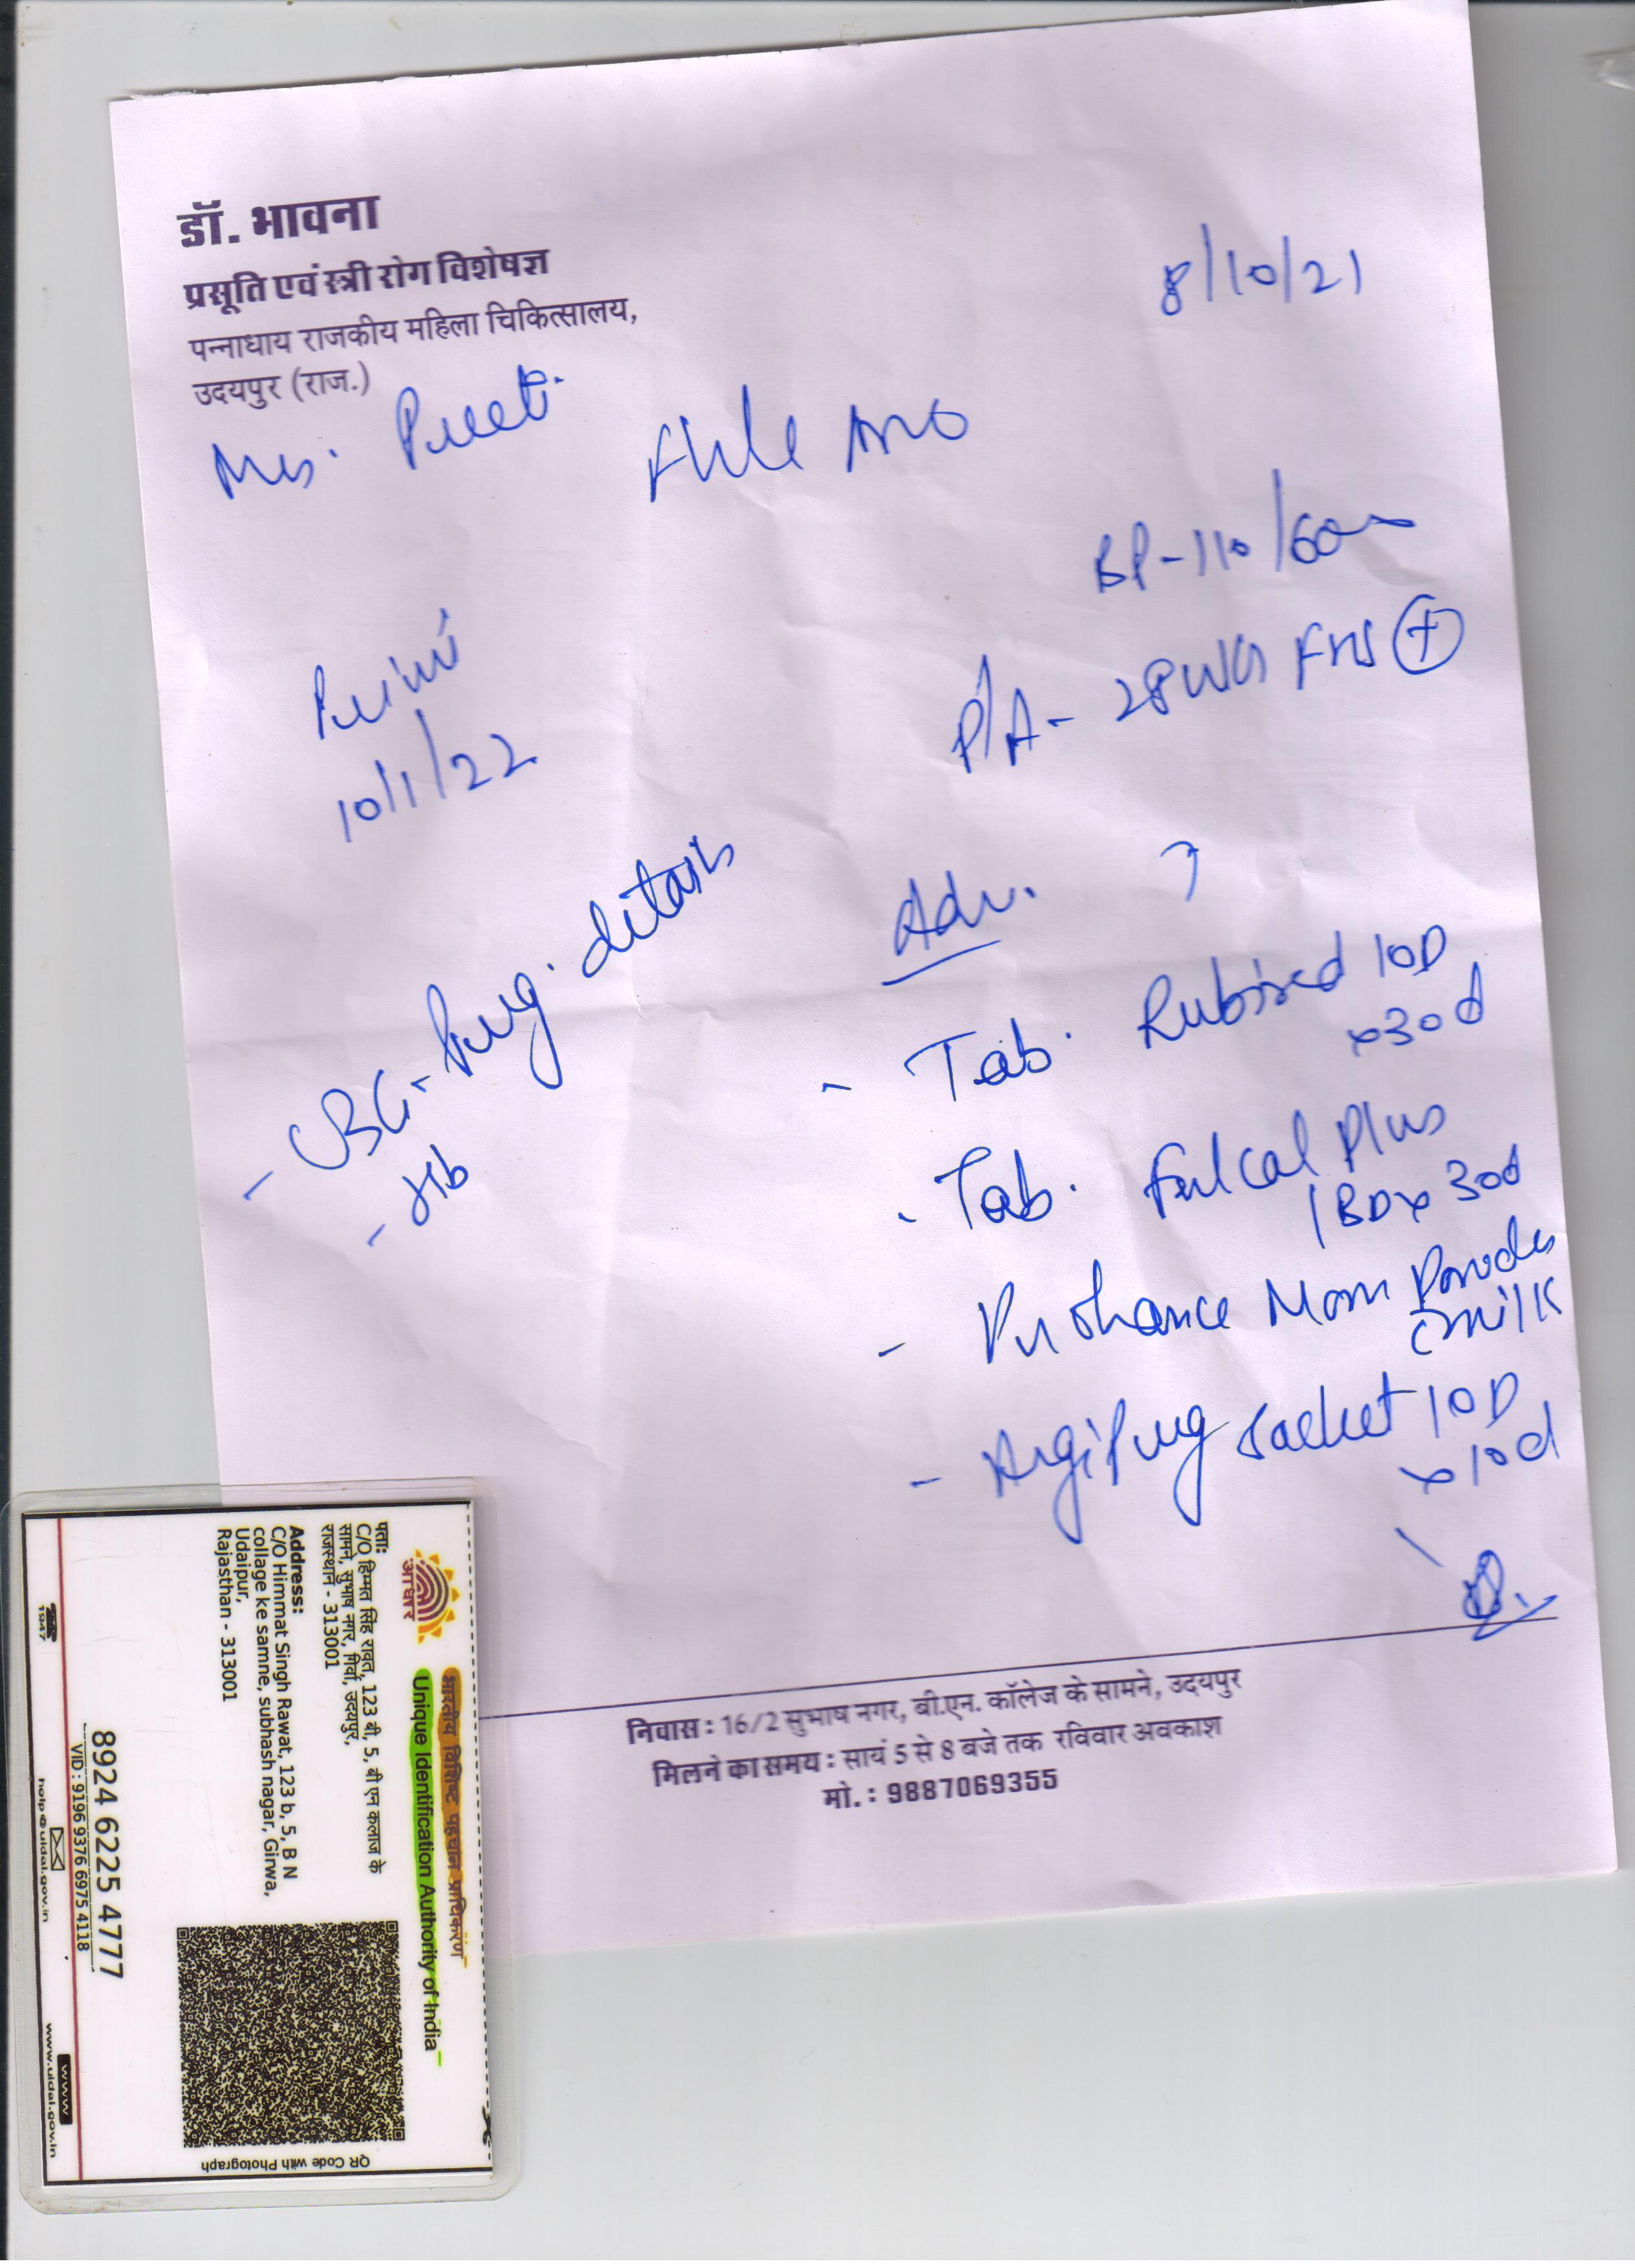 डॉ. भावना
प्रसूति एवं स्त्री रोग विशेषज्ञ
पन्नाधाय राजकीय महिला चिकित्सालय,
उदयपुर (राज.)
8/10/21
Mrs. Preeti
BP - 110/60
P/A - 28 wks FHS +
Primi
10/1/22
Adv.
- Preg. details
- Hb
- Tab. Rubired 1OD
x 30d
- Tab. Cal Plus
1BD x 30d
- Mom Powder
c milk
- Argipreg sachet 1OD
x 10d
निवास : 16/2 सुभाष नगर, बी.एन. कॉलेज के सामने, उदयपुर
मिलने का समय : सायं 5 से 8 बजे तक रविवार अवकाश
मो. : 9887069355
भारतीय विशिष्ट पहचान प्राधिकरण
Unique Identification Authority of India
आधार
पता:
C/O हिम्मत सिंह रावत, 123 बी, 5, बी एन कलाज के
सामने, सुभाष नगर, गिर्वा, उदयपुर,
राजस्थान - 313001
Address:
C/O Himmat Singh Rawat, 123 b, 5, B N
collage ke samne, subhash nagar, Girwa,
Udaipur,
Rajasthan - 313001
QR Code with Photograph
8924 6225 4777
VID : 9196 9376 6975 4118
1947
help@uidai.gov.in
www
www.uidai.gov.in